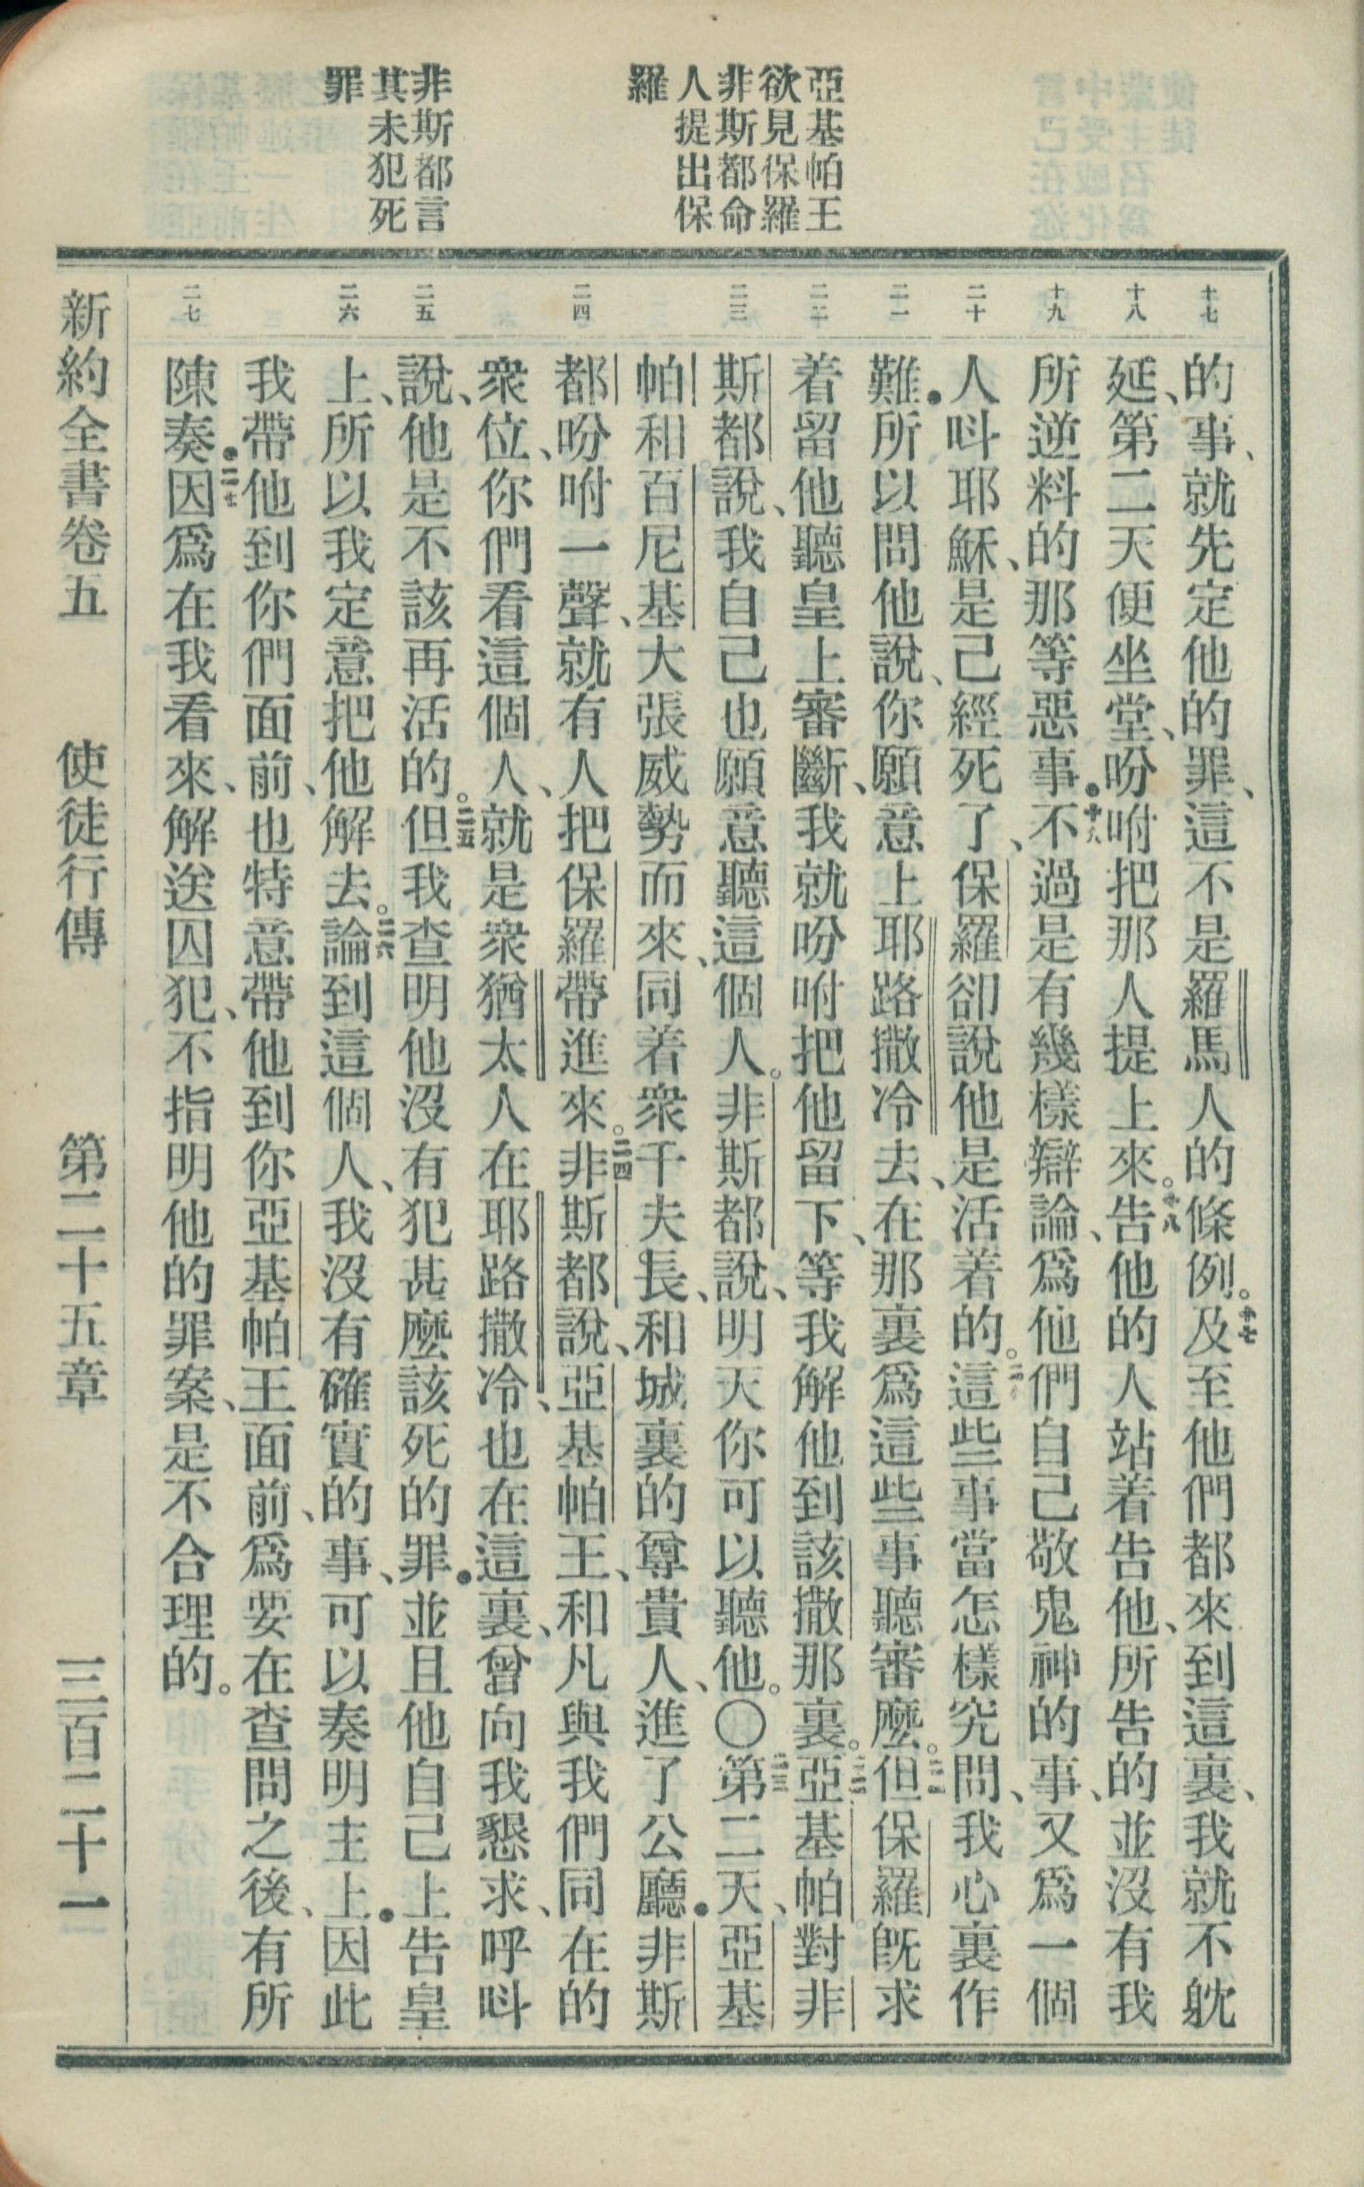 亞基帕王
欲見保羅
非斯都命
人提出保
羅
非斯都言
其未犯死
罪
十七
十八
十九
二十
二一
二二
二三
二四
二五
二六
二七
的事、就先定他的罪、這不是羅馬人的條例。十七及至他們都來到這裏、我就不躭
延、第二天便坐堂、吩咐把那人提上來。十八告他的人站着告他、所告的並沒有我
所逆料的那等惡事．十九不過是有幾樣辯論、爲他們自己敬鬼神的事、又爲一個
人呌耶穌、是己經死了、保羅卻說他是活着的。二十這些事當怎樣究問、我心裏作
難．所以問他說、你願意上耶路撒冷去、在那裏爲這些事聽審麼。二一但保羅旣求
着留他聽皇上審斷、我就吩咐把他留下、等我解他到該撒那裏。二二亞基帕對非
斯都說、我自己也願意聽這個人。非斯都說、明天你可以聽他。〇二三第二天、亞基
帕和百尼基大張威勢而來、同着衆千夫長、和城裏的尊貴人、進了公廳．非斯
都吩咐一聲、就有人把保羅帶進來。二四非斯都說、亞基帕王、和凡與我們同在的
衆位、你們看這個人、就是衆猶太人在耶路撒冷、也在這裏、曾向我懇求、呼呌
說、他是不該再活的。二五但我查明他沒有犯甚麼該死的罪．並且他自己上告皇
上、所以我定意把他解去。二六論到這個人、我沒有確實的事、可以奏明主上．因此
我帶他到你們面前、也特意帶他到你亞基帕王面前、爲要在查問之後、有所
陳奏．二七因爲在我看來、解送囚犯、不指明他的罪案、是不合理的。
新約全書卷五　使徒行傳　第二十五章　三百二十一